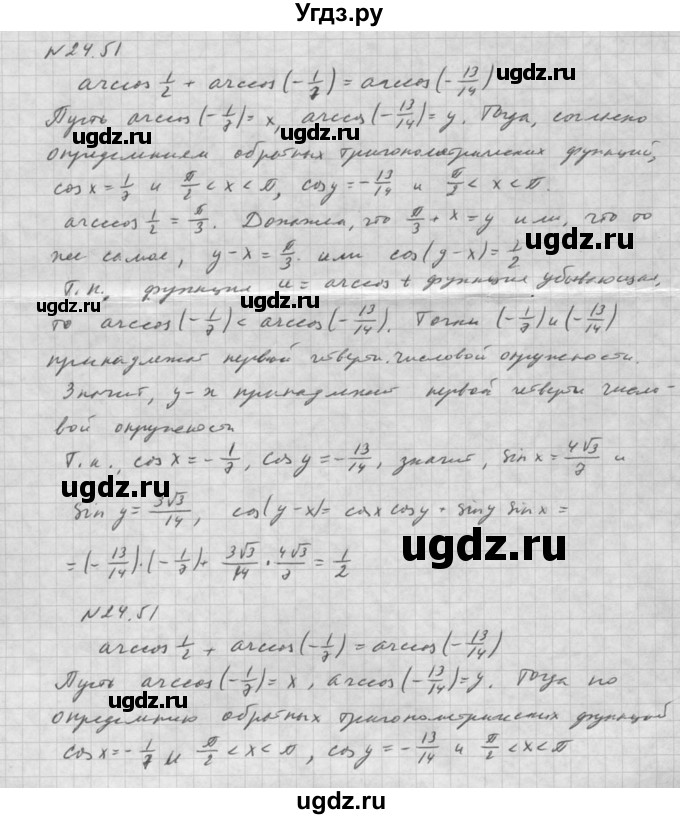 Угдз.ру
№24.51
arccos 1/2 + arccos(-1/7) = arccos(-13/14)
Пусть arccos(-1/7) = x, arccos(-13/14) = y. Тогда, согласно
определением обратных тригонометрических функций,
cos x = 1/7 и π/2 < x < π, cos y = -13/14 и π/2 < x < π.
arccos 1/2 = π/3. Докажем, что π/3 + x = y или, что то
же самое, y - x = π/3. или cos(y-x) = 1/2
Т.к. функция u = arccos t функция убывающая,
то arccos(-1/7) < arccos(-13/14). Точки (-1/7) и (-13/14)
принадлежат первой четверти числовой окружности.
Значит, y-x принадлежит первой четверти число-
вой окружности
Т.к., cos x = -1/7, cos y = -13/14, значит, sin x = 4√3/7 и
sin y = 3√3/14, cos(y-x) = cos x cos y + sin y sin x =
= (-13/14)·(-1/7) + 3√3/14 · 4√3/7 = 1/2
№24.51
arccos 1/2 + arccos(-1/7) = arccos(-13/14)
Пусть arccos(-1/7) = x, arccos(-13/14) = y. Тогда по
определению обратных тригонометрических функций
cos x = -1/7 и π/2 < x < π, cos y = -13/14 и π/2 < x < π
ugdz.ru
ugdz.ru
ugdz.ru
ugdz.ru
ugdz.ru
ugdz.ru
ugdz.ru
ugdz.ru
ugdz.ru
ugdz.ru
ugdz.ru
ugdz.ru